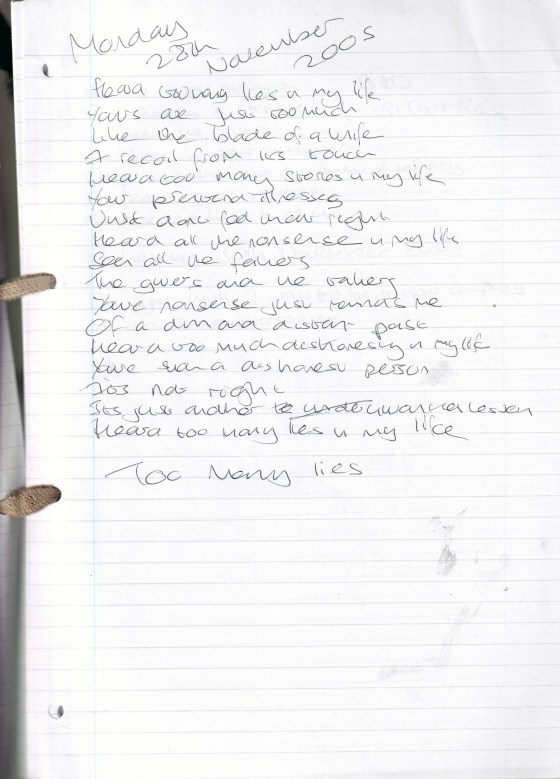 Monday
28th
November
2005
Heard too many lies in my life
Yours are just too much
Like the blade of a knife
I recoil from its touch
Heard too many stories in my life
Your pretend illnesses
Just don't feel right
Heard all the nonsense in my life
Seen all the fakers
The givers and the takers
Your nonsense just reminds me
Of a dim and distant past
Heard too much dishonesty in my life
You're such a dishonest person
It's not right
Its just another unwanted lesson
Heard too many lies in my life
Too Many lies